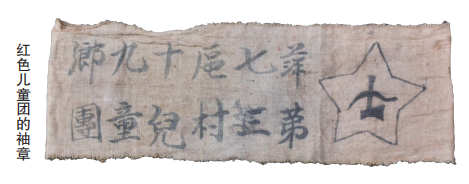 红色儿童团的袖章
萍七區十九鄉
苐三村兒童團